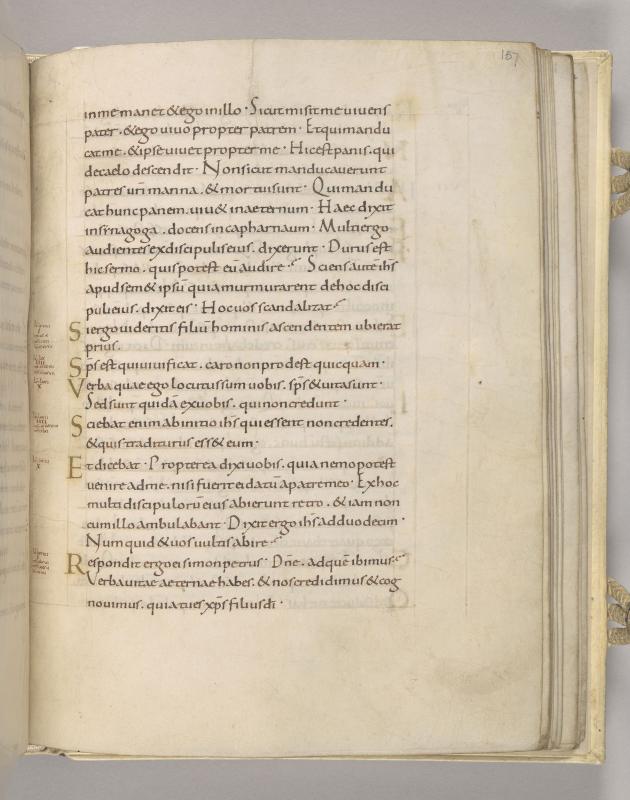 157
inme manet &ego inillo · Sicut misit me uiuens
pater · &ego uiuo propter patrem · Etquimandu
cat me · &ipse uiuet propter me · Hic est panis · qui
decaelo descendit · Nonsicut manducauerunt
patres uri manna · & mortuisunt · Qui man du
cat hunc panem · uiu& inaeternum · Haec dixit
insynagoga · docens incapharnaum · Multi ergo
audientes exdiscipulis eius · dixerunt · Durus est
hic sermo · quis potest eū audire · Sciens autē ihs
apud sem&ipsū quia murmurarent dehoc disci
puli eius · dixit eis · Hoc uos scandalizat
Si ergo uideritis filiū hominis ascendentem ubi erat
prius ·
Sps est qui uiuificat · caro non prodest quicquam ·
Verba quae ego locutus sum uobis · sps &uita sunt ·
Sed sunt quidā exuobis · qui non credunt ·
Sciebat enim abinitio ihs qui essent non credentes ·
&quis traditurus ess& eum ·
Et dicebat · Propterea dixi uobis · quia nemo potest
uenire adme · nisi fuerit ei datū apatre meo · Ex hoc
multi discipulorū eius abierunt retro · & iam non
cum illo ambulabant · Dixit ergo ihs ad duodecim ·
Numquid &uos uultis abire
Respondit ergo ei simon petrus · Dne · ad quē ibimus
Verba uitae aeternae habes · & nos credidimus &cog
nouimus · quia tu es xps filius di ·